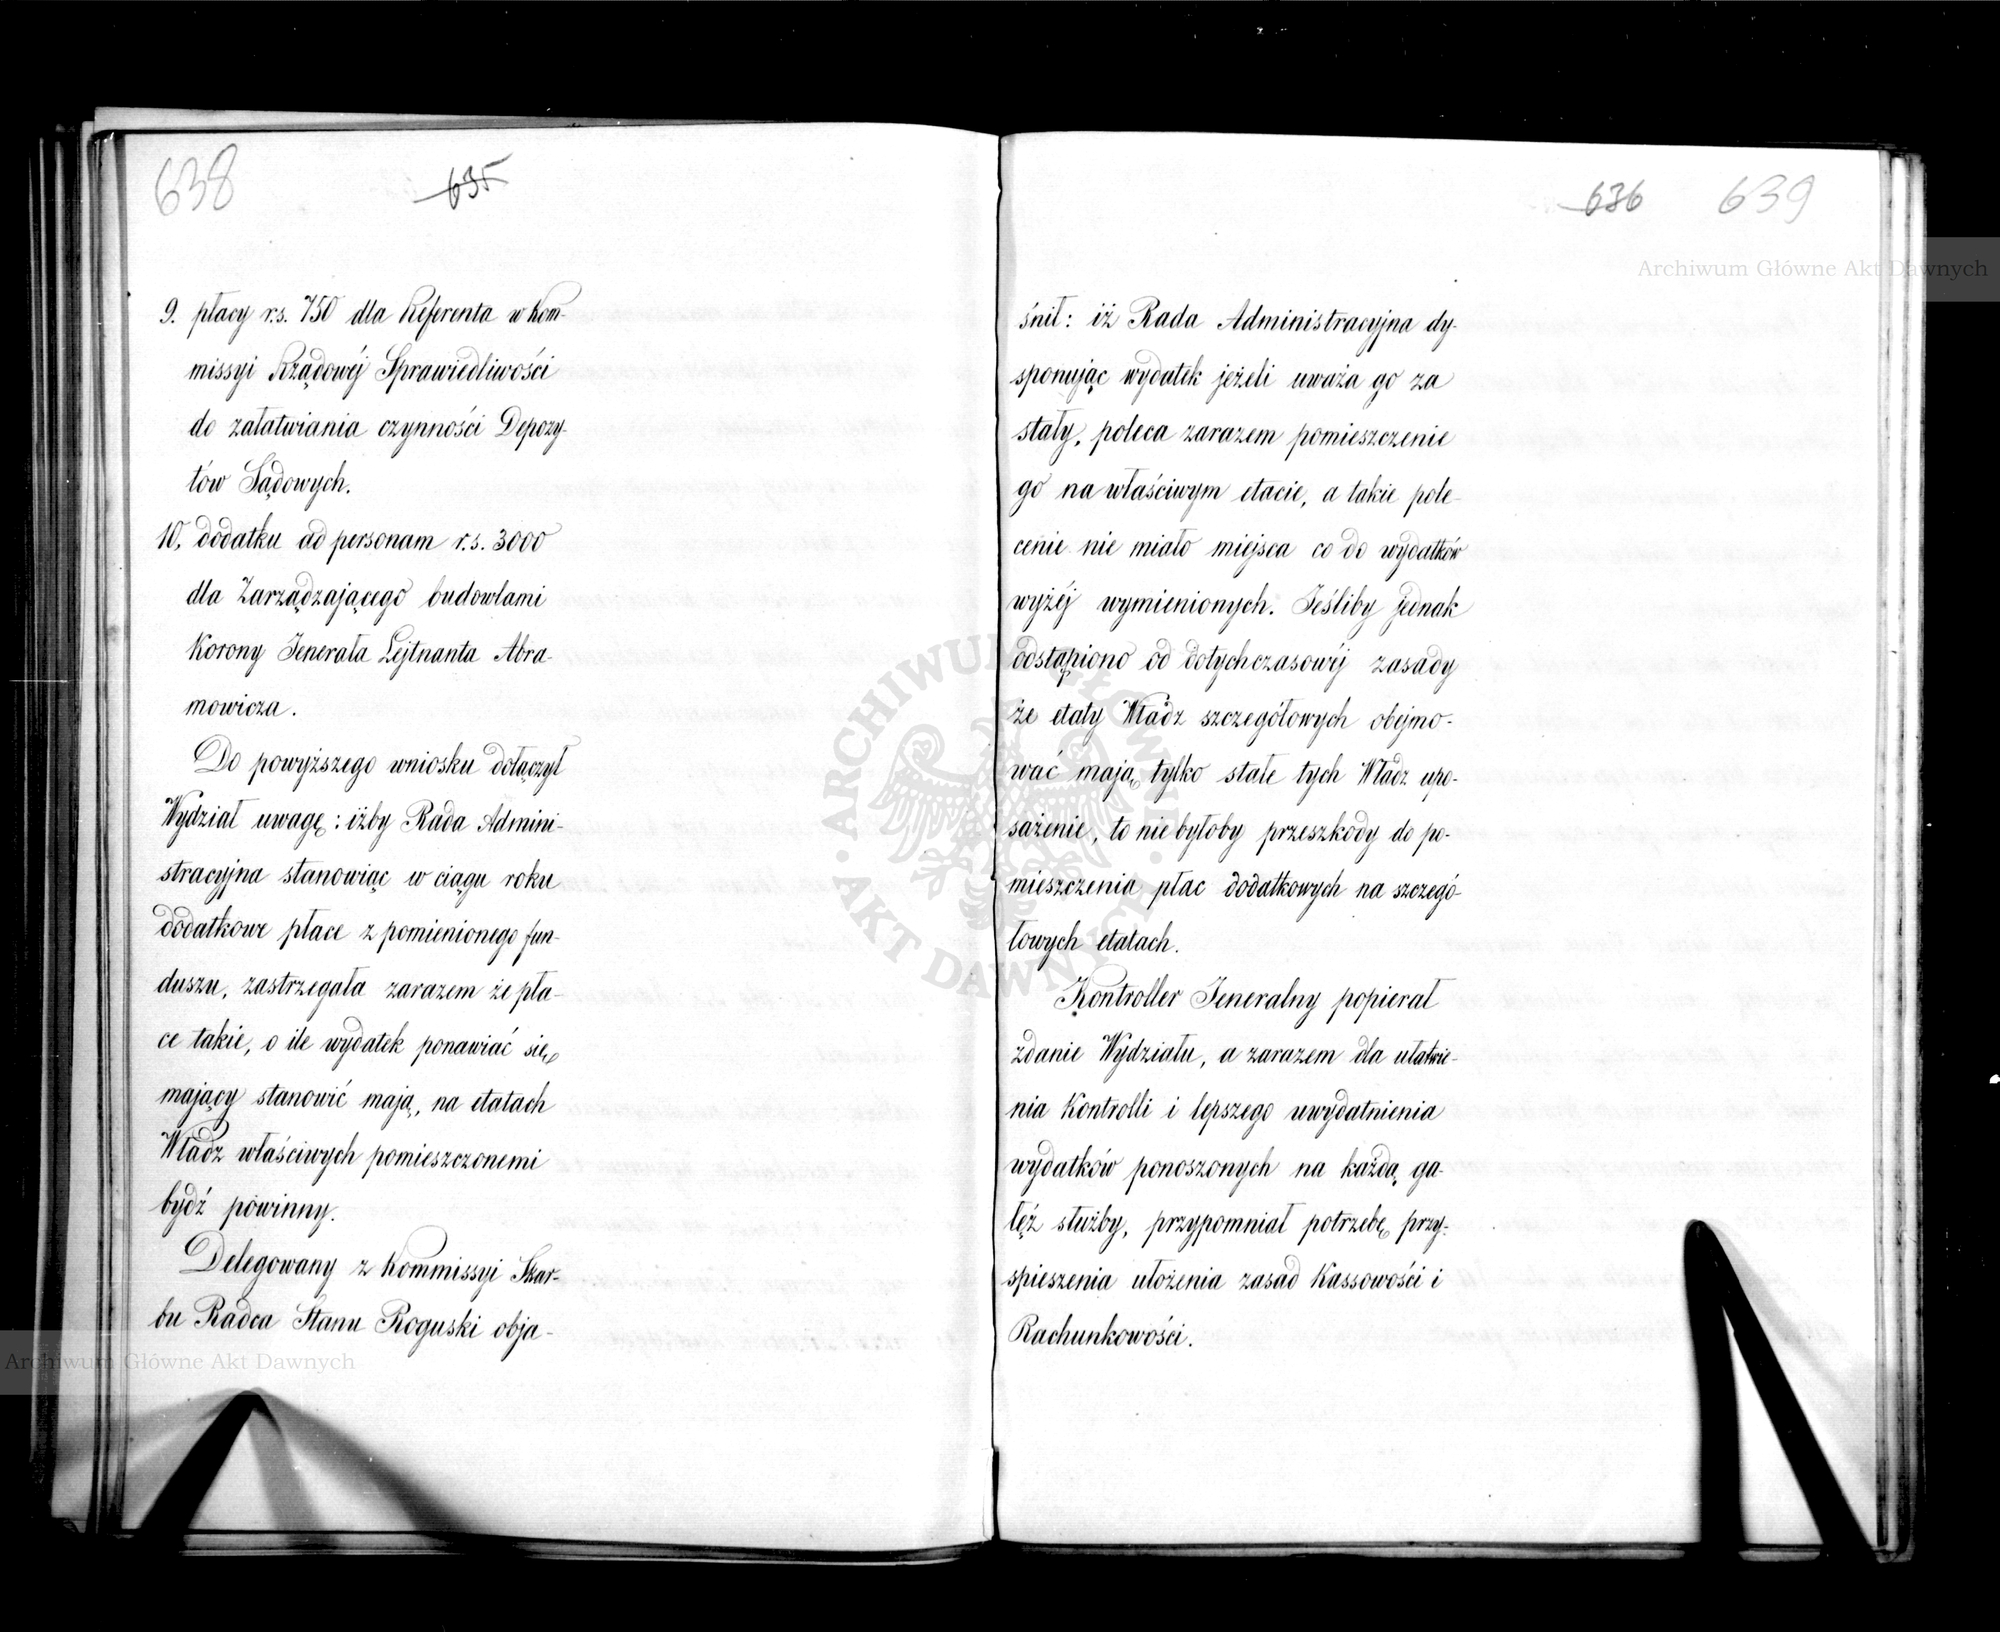 638 635
9. płacy r.s. 750 dla Referenta w Kom-
missyi Rządowéj Sprawiedliwości
do załatwiania czynności Depozy-
tów Sądowych.
10. dodatku ad personam r.s. 3000
dla Zarządzającego budowlami
Korony Jenerała Lejtnanta Abra-
mowicza.
Do powyższego wniosku dołączył
Wydział uwagę: iżby Rada Admini-
stracyjna stanowiąc w ciągu roku
dodatkowe płace z pomienionego fun-
duszu, zastrzegała zarazem że pła-
ce takie, o ile wydatek ponawiać się
mający stanowić mają, na etatach
Władz właściwych pomieszczonemi
bydź powinny.
Delegowany z Kommissyi Skar-
bu Radca Stanu Roguski obja-
636 639
śnił: iż Rada Administracyjna dy-
sponując wydatek jeżeli uważa go za
stały, poleca zarazem pomieszczenie
go na właściwym etacie, a takie pole-
cenie nie miało miejsca co do wydatków
wyżéj wymienionych. Jeśliby jednak
odstąpiono od dotychczasowéj zasady
że etaty Władz szczegółowych obejmo-
wać mają tylko stałe tych Władz upo-
sażenie, to nie byłoby przeszkody do po-
mieszczenia płac dodatkowych na szczegó-
łowych etatach.
Kontroller Jeneralny popierał
zdanie Wydziału, a zarazem dla ułatwie-
nia Kontrolli i lepszego uwydatnienia
wydatków ponoszonych na każdą ga-
łęź służby, przypomniał potrzebę przy-
spieszenia ułożenia zasad Kassowości i
Rachunkowości.
Archiwum Główne Akt Dawnych
Archiwum Główne Akt Dawnych
ARCHIWUM GŁÓWNE
AKT DAWNYCH